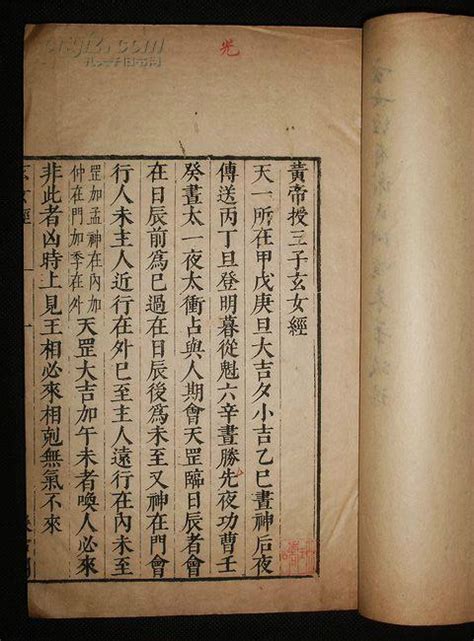 黃帝授三子玄女經
天一所在甲戊庚旦大吉夕小吉乙巳晝神后夜
傳送丙丁旦登明暮從魁六辛晝勝先夜功曹壬
癸晝太一夜太衝占與人期會天罡臨日辰者會
在日辰前爲巳過在日辰後爲未至又神在門會
行人未主人近行在外巳至主人遠行在內未至
罡加孟神在內加
仲在門加季在外
天罡大吉加午未者喚人必來
非此者凶時上見王相必來相剋無氣不來
玄女經 一
孔夫子旧书网